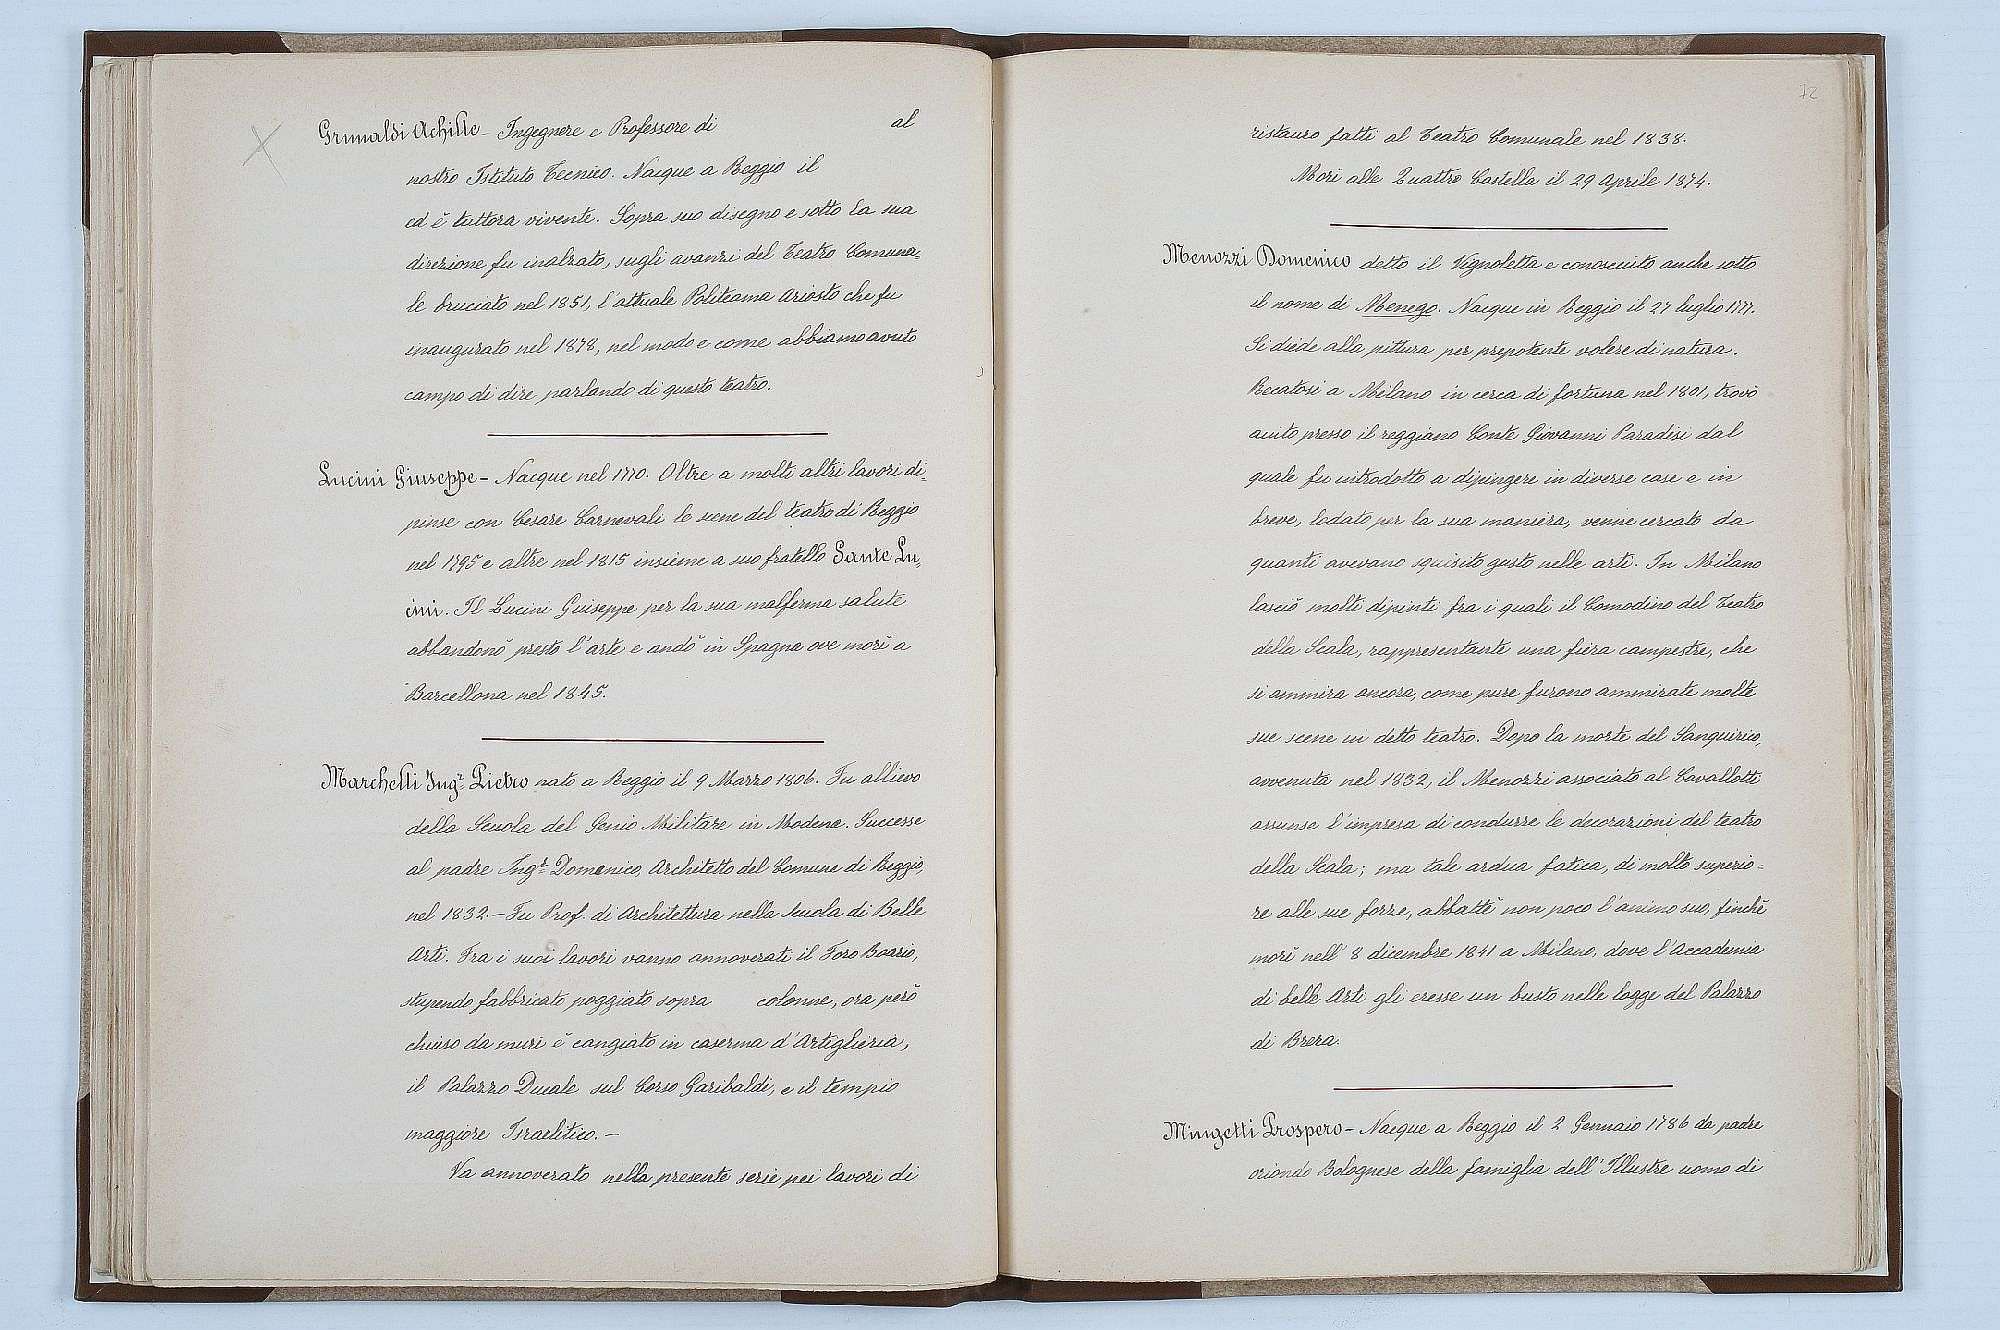 Grimaldi Achille - Ingegnere e Professore di al
nostro Istituto Tecnico. Nacque a Reggio il
ed è tuttora vivente. Sopra suo disegno e sotto la sua
direzione fu inalzato, sugli avanzi del Teatro Comuna=
le bruciato nel 1851, l'attuale Politeama Ariosto che fu
inaugurato nel 1878, nel modo e come abbiamo avuto
campo di dire parlando di questo teatro.
Lucini Giuseppe - Nacque nel 1770. Oltre a molti altri lavori di=
pinse con Cesare Carnevali le scene del teatro di Reggio
nel 1795 e altre nel 1815 insieme a suo fratello Sante Lu=
cini. Il Lucini Giuseppe per la sua malferma salute
abbandonò presto l'arte e andò in Spagna ove morì a
Barcellona nel 1845.
Marchelli Ing.r Pietro nato a Reggio il 9 Marzo 1806. Fu allievo
della Scuola del Genio Militare in Modena. Successe
al padre Ing.r Domenico, Architetto del Comune di Reggio,
nel 1832 - Fu Prof. di Architettura nella scuola di Belle
Arti. Fra i suoi lavori vanno annoverati il Foro Boario,
stupendo fabbricato poggiato sopra colonne, ora però
chiuso da muri è cangiato in caserma d'Artiglieria,
il Palazzo Ducale sul Corso Garibaldi, e il tempio
maggiore Israelitico. -
Va annoverato nella presente serie pei lavori di
72
ristauro fatti al Teatro Comunale nel 1838.
Morì alle Quattro Castella il 29 Aprile 1874.
Menozzi Domenico detto il Vignoletta e conosciuto anche sotto
il nome di Menego. Nacque in Reggio il 27 luglio 1777.
Si diede alla pittura per prepotente volere di natura.
Recatosi a Milano in cerca di fortuna nel 1801, trovò
aiuto presso il reggiano Conte Giovanni Paradisi dal
quale fu introdotto a dipingere in diverse case e in
breve, lodato per la sua maniera, venne cercato da
quanti avevano squisito gusto nelle arti. In Milano
lasciò molti dipinti fra i quali il Comodino del Teatro
della Scala, rappresentante una fiera campestre, che
si ammira ancora, come pure furono ammirate molte
sue scene in detto teatro. Dopo la morte del Sanquirico,
avvenuta nel 1832, il Menozzi associato al Cavallotti
assunse l'impresa di condurre le decorazioni del teatro
della Scala; ma tale ardua fatica, di molto superio=
re alle sue forze, abbattè non poco l'animo suo, finchè
morì nell' 8 dicembre 1841 a Milano, dove l'Accademia
di belle Arti gli eresse un busto nelle logge del Palazzo
di Brera.
Mingetti Prospero - Nacque a Reggio il 2 Gennaio 1786 da padre
oriondo Bolognese della famiglia dell'Illustre uomo di